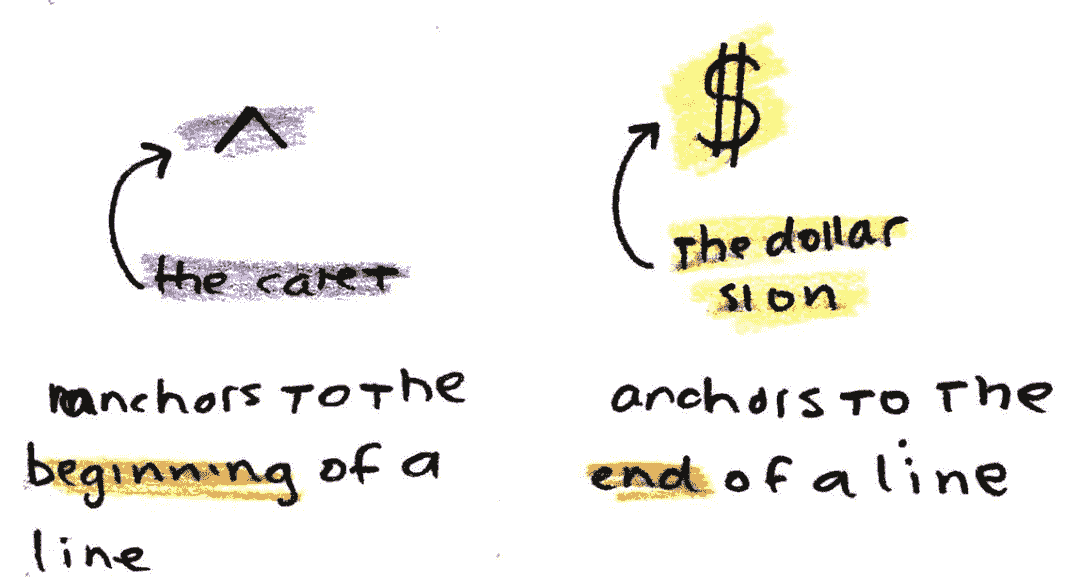 ^
the caret
anchors to the
beginning of a
line
$
the dollar
sion
anchors to the
end of a line